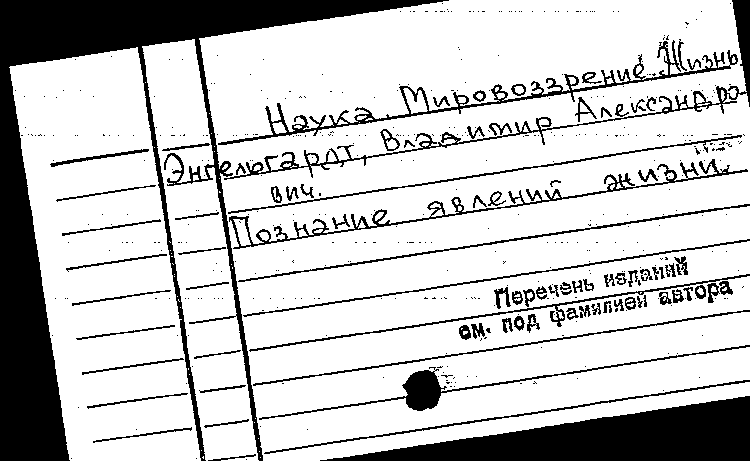 Наука. Мировоззрение. Жизнь.
Энгельгардт, Владимир Александро-
вич.
Познание явлений жизни.
Перечень изданий
см. под фамилией автора